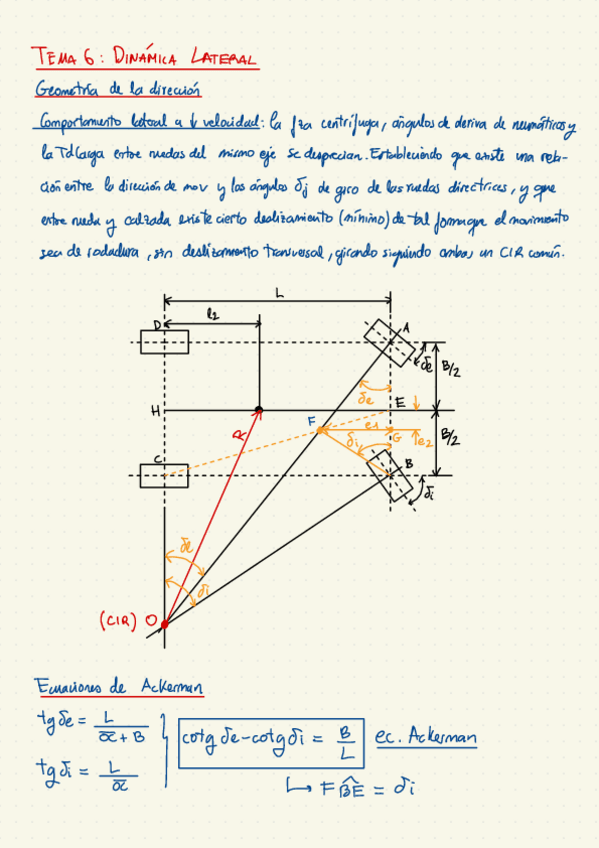 TEMA 6: DINÁMICA LATERAL
Geometría de la dirección
Comportamiento lateral a ↓ velocidad: la fza centrífuga, ángulos de deriva de neumáticos y
la Td Carga entre ruedas del mismo eje se desprecian. Estableciendo que existe una rela-
ción entre la dirección de mov y los ángulos δj de giro de las ruedas directrices, y que
entre rueda y calzada existe cierto deslizamiento (mínimo) de tal forma que el movimiento
sea de rodadura, sin deslizamiento transversal, girando siguiendo ambas un CIR común.
L
l2
D
A
δe
B/2
δe
H
E
F
e1
G
e2
B/2
R
δi
C
B
δi
δe
δi
(CIR) O
Ecuaciones de Ackerman
tg δe = L / (x + B)
tg δi = L / x
cotg δe - cotg δi = B / L
ec. Ackerman
↳ FB̂E = δi